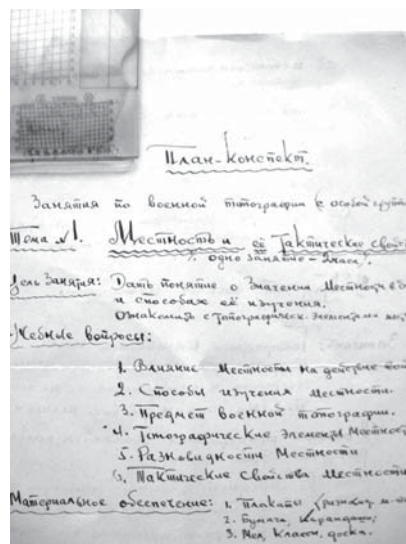 План-Конспект.
Занятия по военной топографии (с особой групп
Тема №1. Местность и её Тактические свойс
/ одно занятие – 2часа /.
Цель Занятия: Дать понятие о Значении Местности в б
и способах её изучения.
Ознакомить с топографическ. Элементами мес
Учебные вопросы:
1. Влияние Местности на действие вой
2. Способы изучения Местности.
3. Предмет военной топографии.
4. Топографические Элементы Местнос
5. Разновидности Местности
6. Тактические Свойства Местности
Материальное обеспечение: 1. Плакаты
2. Бумага, Карандаши;
3. Мел, Класс, доска.